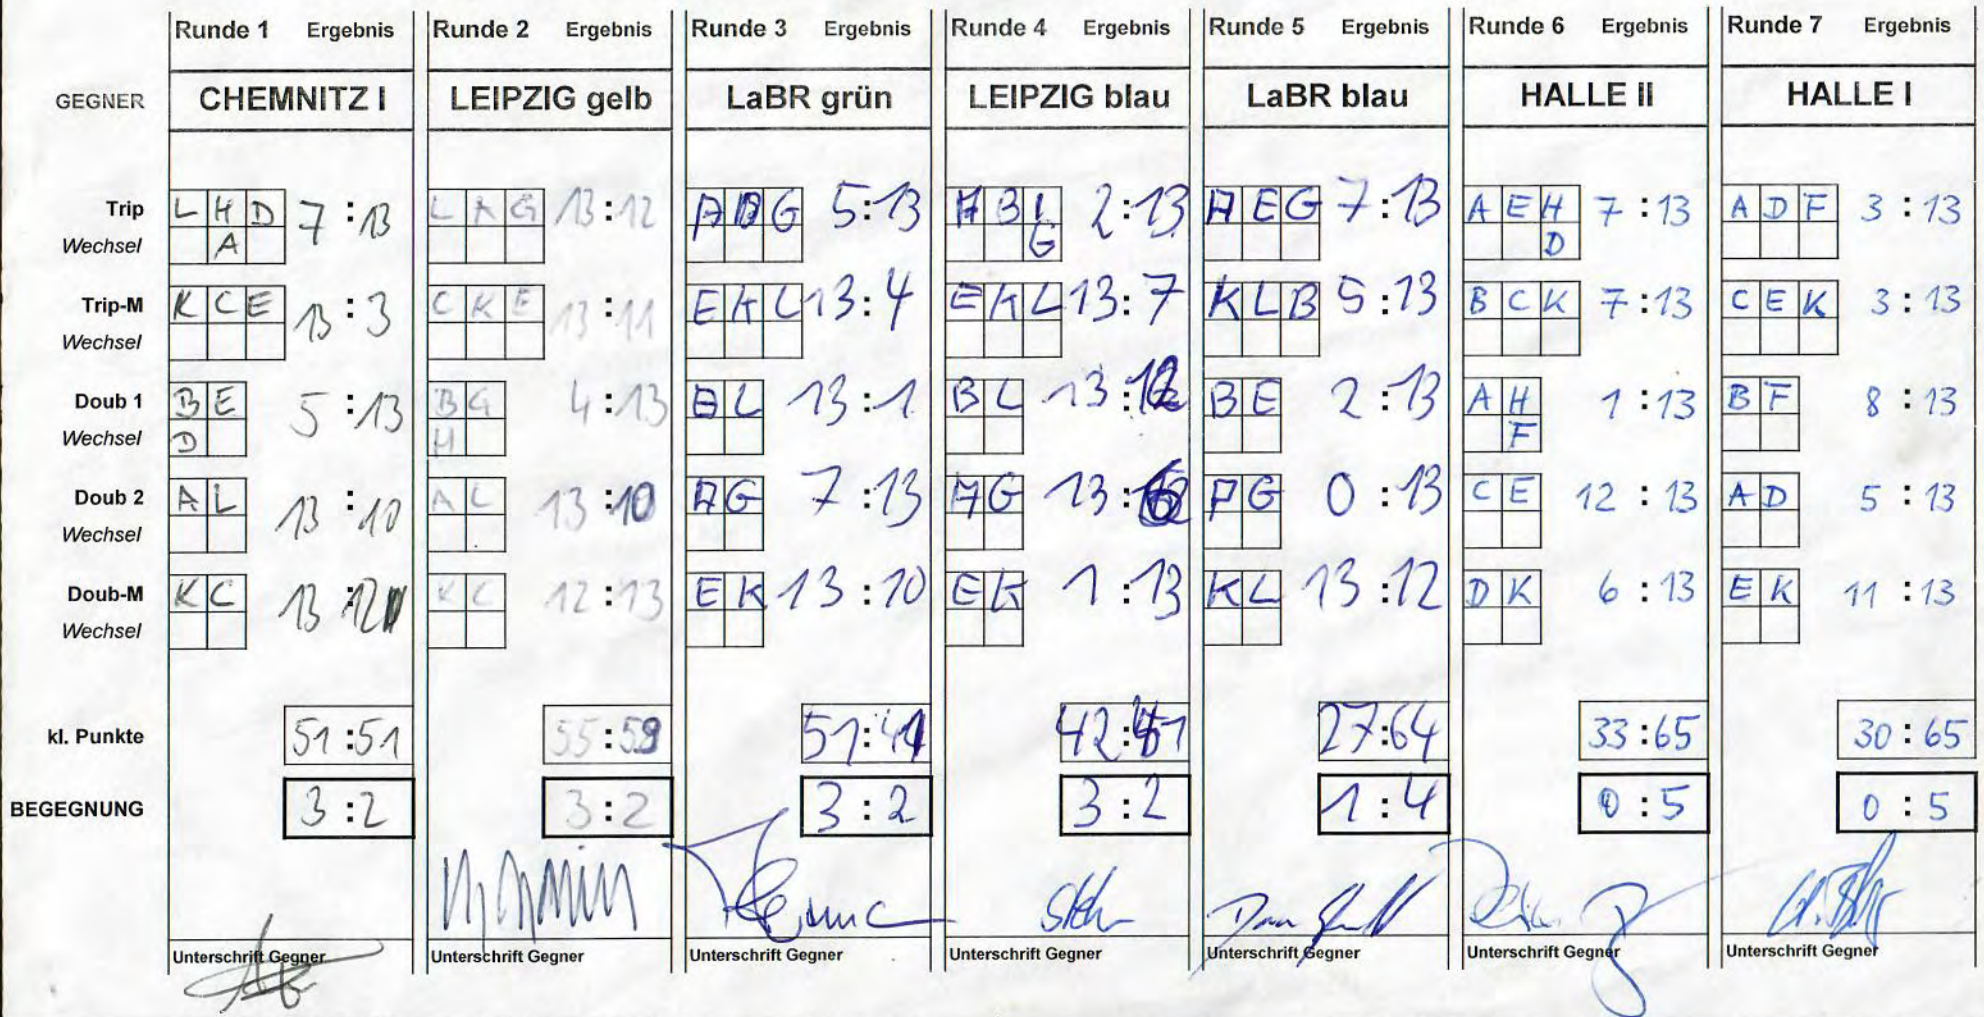 Runde 1 Ergebnis Runde 2 Ergebnis Runde 3 Ergebnis Runde 4 Ergebnis Runde 5 Ergebnis Runde 6 Ergebnis Runde 7 Ergebnis
GEGNER CHEMNITZ I LEIPZIG gelb LaBR grün LEIPZIG blau LaBR blau HALLE II HALLE I
Trip L H D 7:13 L A G 13:12 A B G 5:13 A B L 2:13 A E G 7:13 A E H 7:13 A D F 3:13
Wechsel A G D
Trip-M K C E 13:3 C K E 13:11 E K L 13:4 E K L 13:7 K L B 5:13 B C K 7:13 C E K 3:13
Wechsel
Doub 1 B E 5:13 B G 4:13 B L 13:1 B L 13:12 B E 2:13 A H 1:13 B F 8:13
Wechsel D H F
Doub 2 A L 13:10 A L 13:10 A G 7:13 A G 13:6 A G 0:13 C E 12:13 A D 5:13
Wechsel
Doub-M K C 13:12 K C 12:13 E K 13:10 E K 1:13 K L 13:12 D K 6:13 E K 11:13
Wechsel
kl. Punkte 51:51 55:59 51:41 42:51 27:64 33:65 30:65
BEGEGNUNG 3:2 3:2 3:2 3:2 1:4 0:5 0:5
Unterschrift Gegner Unterschrift Gegner Unterschrift Gegner Unterschrift Gegner Unterschrift Gegner Unterschrift Gegner Unterschrift Gegner